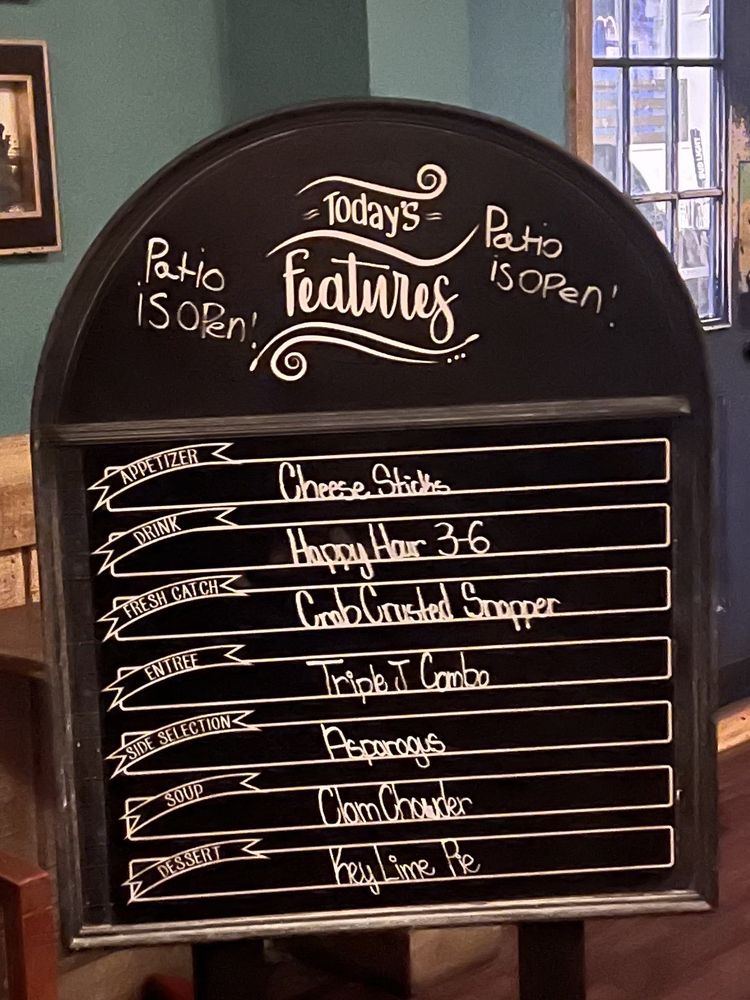 Today's
Features
Patio
is open!
Patio
is open!
APPETIZER
Cheese Sticks
DRINK
Happy Hour 3-6
FRESH CATCH
Crab Crusted Snapper
ENTREE
Triple J Combo
SIDE SELECTION
Asparagus
SOUP
Clam Chowder
DESSERT
Key Lime Pie
BUD LIGHT